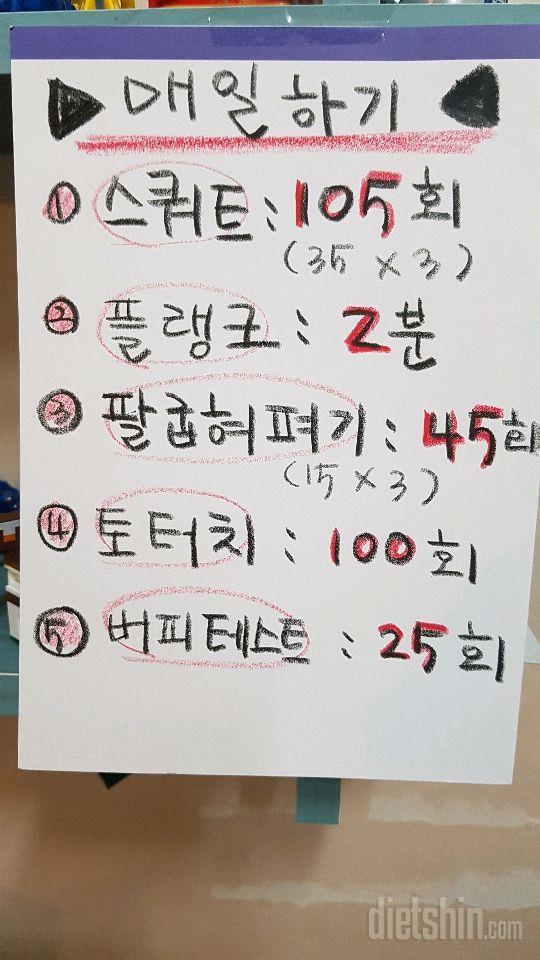 ▶ 매일하기 ◀
① 스쿼트 : 105회
(35 × 3)
② 플랭크 : 2분
③ 팔굽혀펴기 : 45회
(15 × 3)
④ 토터치 : 100회
⑤ 버피테스트 : 25회
dietshin.com